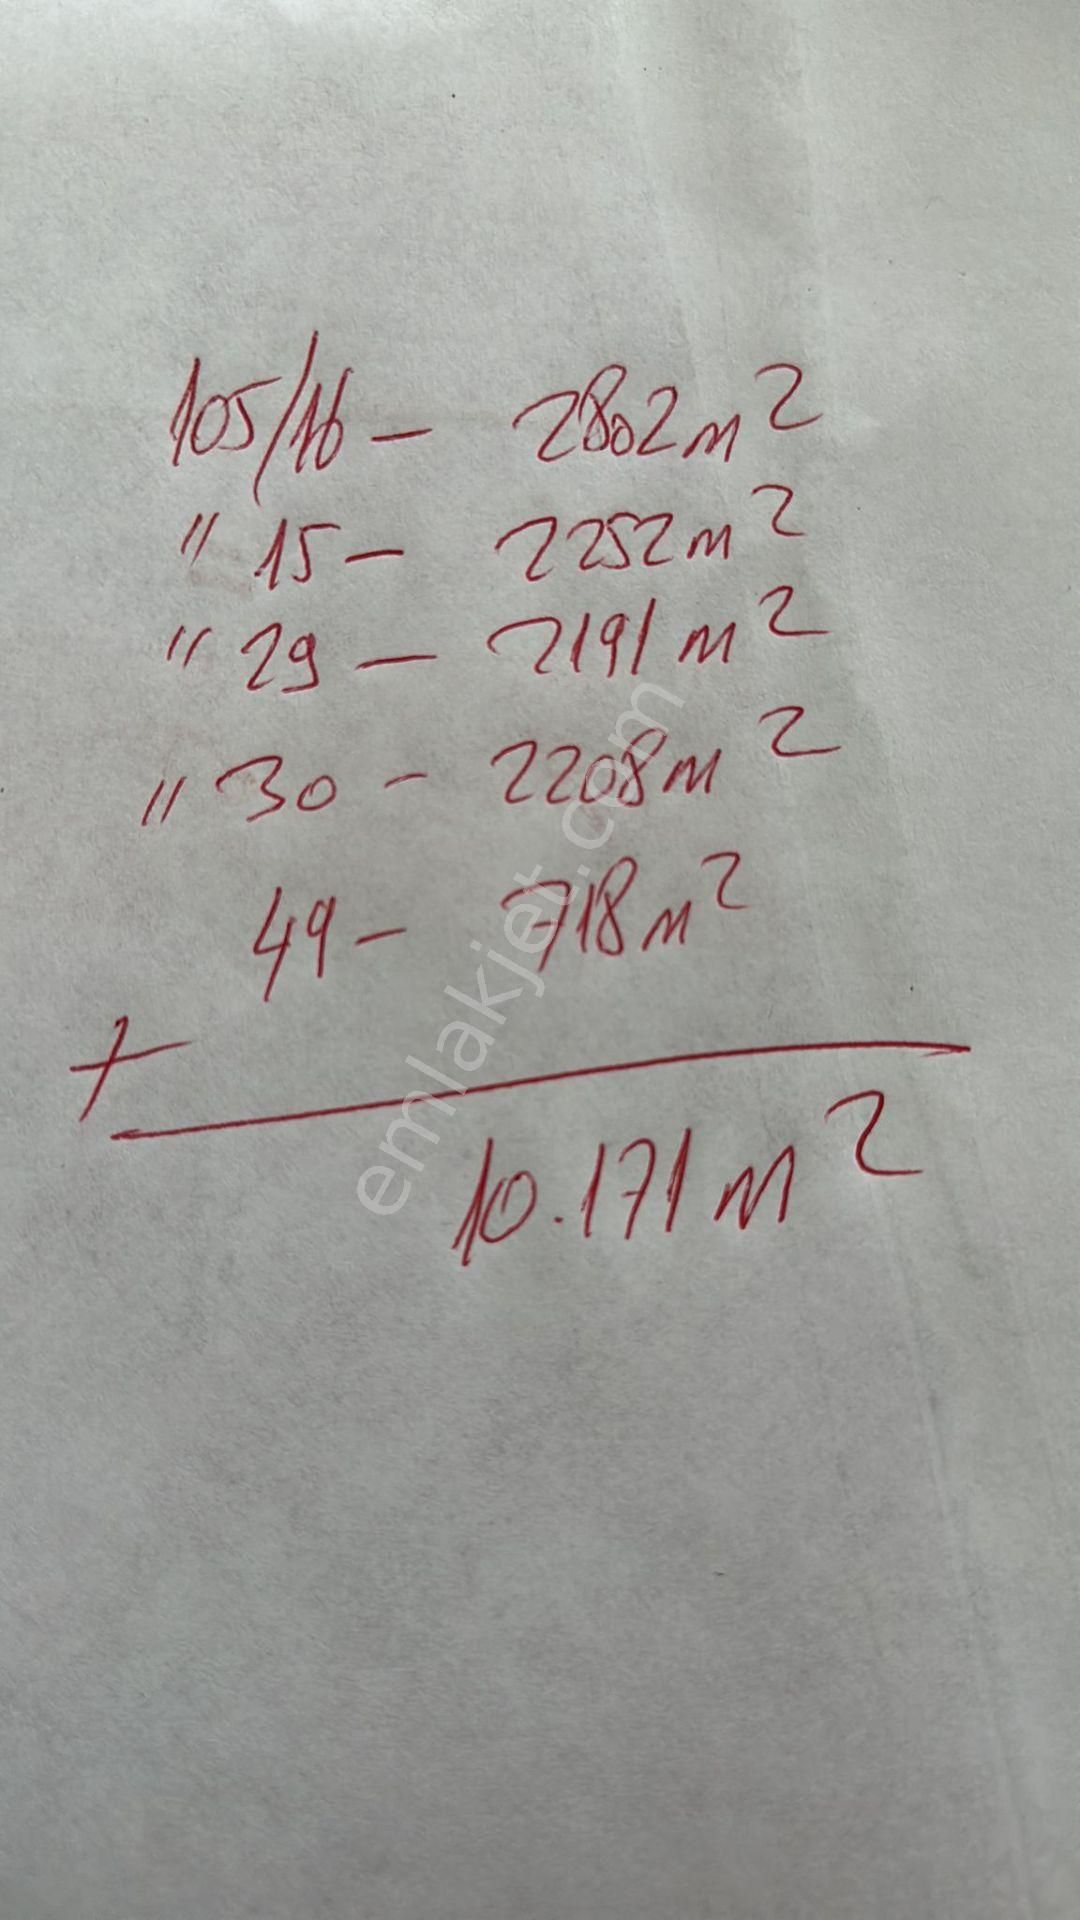 105/16 - 2802m²
" 15 - 2252m²
" 29 - 2191m²
" 30 - 2208m²
49 - 718m²
+
10.171m²
emlakjet.com